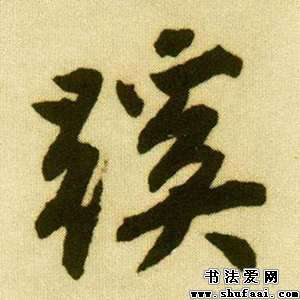 蹊
书法爱网
www.shufaai.com